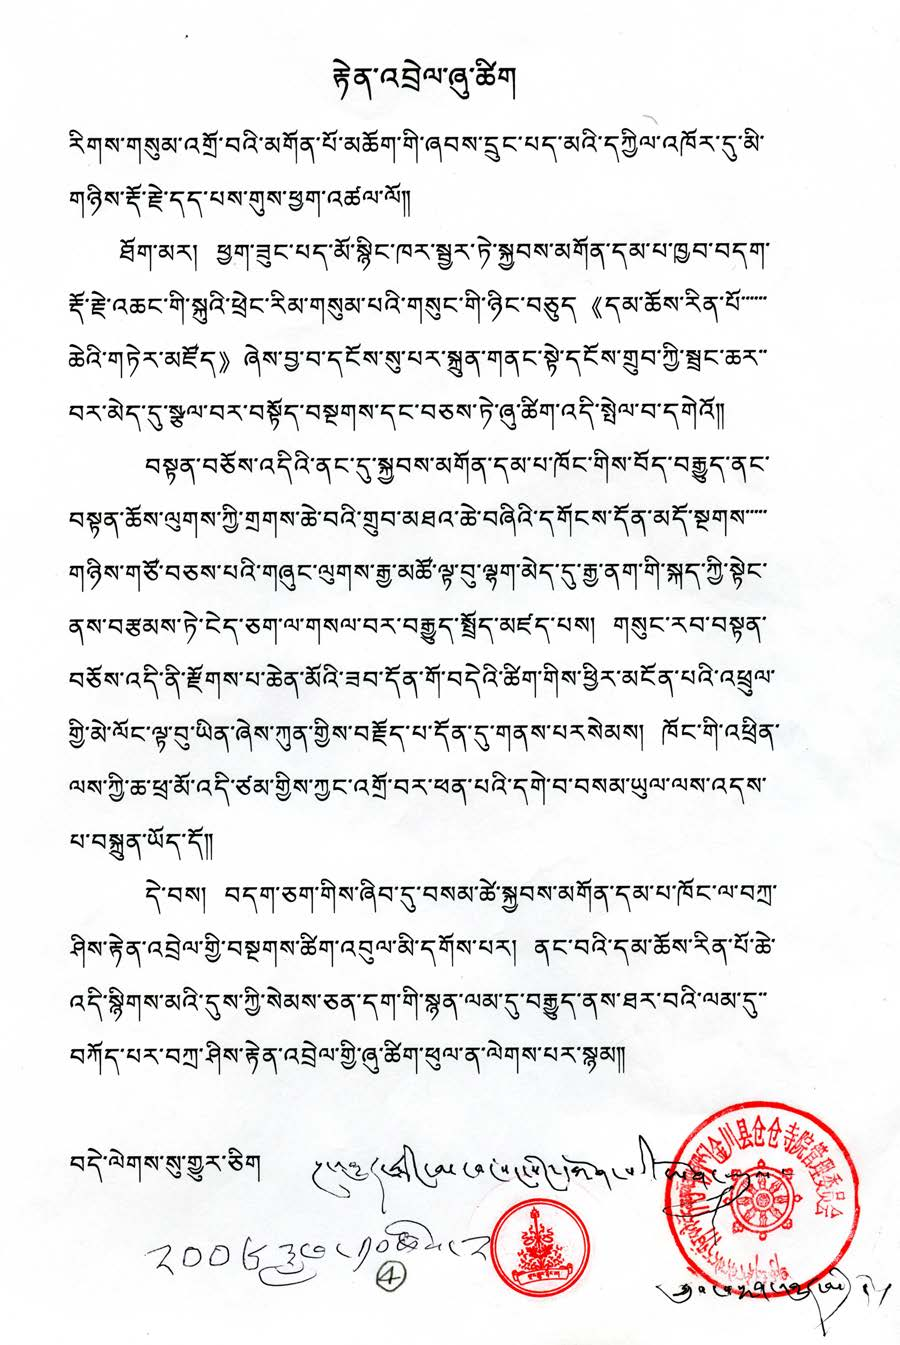 རྟེན་འབྲེལ་ཞུ་ཚིག
རིགས་གསུམ་འགྲོ་བའི་མགོན་པོ་མཆོག་གི་ཞབས་དྲུང་པད་མའི་དཀྱིལ་འཁོར་དུ་མི་
གཉིས་རྡོ་རྗེ་དད་པས་གུས་ཕྱག་འཚལ་ལོ།།
ཐོག་མར། ཕྱག་ཟུང་པད་མོ་སྙིང་ཁར་སྦྱར་ཏེ་སྐྱབས་མགོན་དམ་པ་ཁྱབ་བདག་
རྡོ་རྗེ་འཆང་གི་སྐུའི་ཕྲེང་རིམ་གསུམ་པའི་གསུང་གི་ཉིང་བཅུད 《དམ་ཆོས་རིན་པོ……
ཆེའི་གཏེར་མཛོད》 ཞེས་བྱ་བ་དངོས་སུ་པར་སྐྲུན་གནང་སྟེ་དངོས་གྲུབ་ཀྱི་སྦྲང་ཆར…
བར་མེད་དུ་སྩལ་བར་བསྟོད་བསྔགས་དང་བཅས་ཏེ་ཞུ་ཚིག་འདི་སྤེལ་བ་དགེའོ།།
བསྟན་བཅོས་འདིའི་ནང་དུ་སྐྱབས་མགོན་དམ་པ་ཁོང་གིས་བོད་བརྒྱུད་ནང་
བསྟན་ཆོས་ལུགས་ཀྱི་གྲགས་ཆེ་བའི་གྲུབ་མཐའ་ཆེ་བཞིའི་དགོངས་དོན་མདོ་སྔགས……
གཉིས་གཙོ་བཅས་པའི་གཞུང་ལུགས་རྒྱ་མཚོ་ལྟ་བུ་ལྷག་མེད་དུ་རྒྱ་ནག་གི་སྐད་ཀྱི་སྟེང་
ནས་བརྩམས་ཏེ་ངེད་ཅག་ལ་གསལ་བར་བརྒྱུད་སྤྲོད་མཛད་པས། གསུང་རབ་བསྟན་
བཅོས་འདི་ནི་རྫོགས་པ་ཆེན་མོའི་ཟབ་དོན་གོ་བདེའི་ཚིག་གིས་ཕྱིར་མངོན་པའི་འཕྲུལ་
གྱི་མེ་ལོང་ལྟ་བུ་ཡིན་ཞེས་ཀུན་གྱིས་བརྗོད་པ་དོན་དུ་གནས་པར་སེམས། ཁོང་གི་འཕྲིན་
ལས་ཀྱི་ཆ་ཕྲ་མོ་འདི་ཙམ་གྱིས་ཀྱང་འགྲོ་བར་ཕན་པའི་དགེ་བ་བསམ་ཡུལ་ལས་འདས་
པ་བསྐྲུན་ཡོད་དོ།།
དེ་བས། བདག་ཅག་གིས་ཞིབ་དུ་བསམ་ཚེ་སྐྱབས་མགོན་དམ་པ་ཁོང་ལ་བཀྲ་
ཤིས་རྟེན་འབྲེལ་གྱི་བསྔགས་ཚིག་འབུལ་མི་དགོས་པར། ནང་བའི་དམ་ཆོས་རིན་པོ་ཆེ་
འདི་སྙིགས་མའི་དུས་ཀྱི་སེམས་ཅན་དག་གི་སྙན་ལམ་དུ་བརྒྱུད་ནས་ཐར་བའི་ལམ་དུ…
བཀོད་པར་བཀྲ་ཤིས་རྟེན་འབྲེལ་གྱི་ཞུ་ཚིག་ཕུལ་ན་ལེགས་པར་སྙམ།།
བདེ་ལེགས་སུ་གྱུར་ཅིག
金川县仓仓寺院管理委员会
④